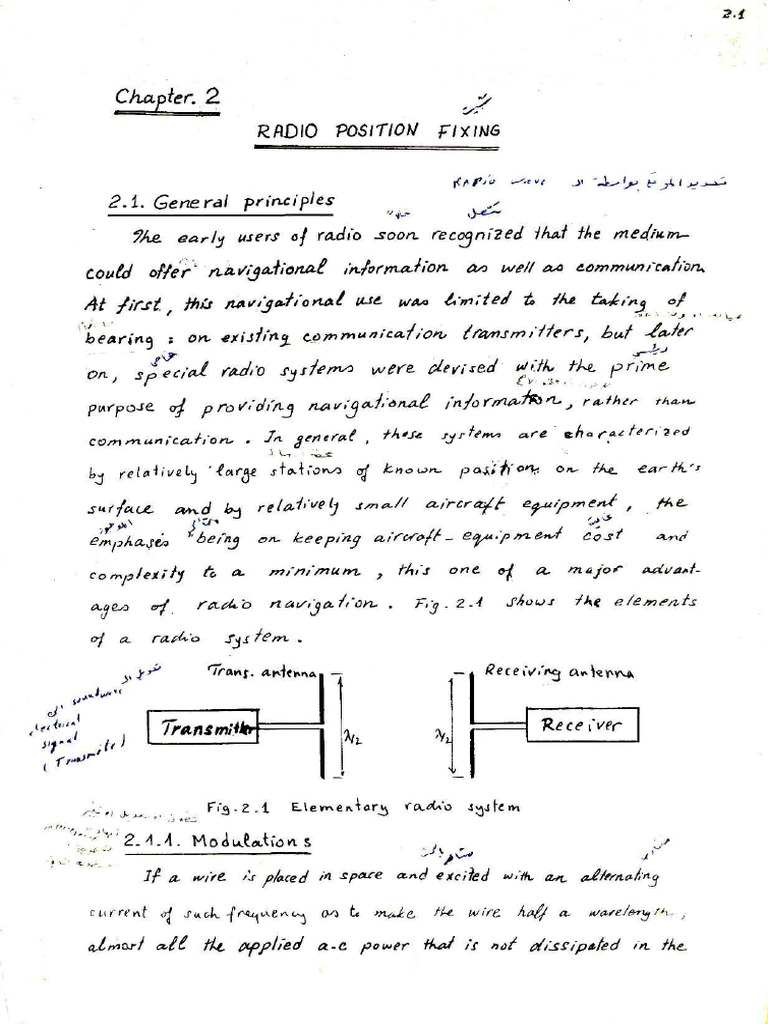 2.1
Chapter. 2
RADIO POSITION FIXING
تحديد الموقع بواسطة ال RADIO wave
2.1. General principles
The early users of radio soon recognized that the medium
could offer navigational information as well as communication.
At first, this navigational use was limited to the taking of
bearing : on existing communication transmitters, but later
on, special radio systems were devised with the prime
purpose of providing navigational information, rather than
communication. In general, these systems are characterized
by relatively large stations of known position on the earth's
surface and by relatively small aircraft equipment, the
emphases being on keeping aircraft-equipment cost and
complexity to a minimum, this one of a major advant-
ages of radio navigation. Fig. 2.1 shows the elements
of a radio system.
Trans. antenna
Receiving antenna
soundwave
electrical
signal
(Transmite)
Transmitter
λ/2
λ/2
Receiver
Fig. 2.1 Elementary radio system
2.1.1. Modulations
If a wire is placed in space and excited with an alternating
current of such frequency as to make the wire half a wavelength,
almost all the applied a-c power that is not dissipated in the